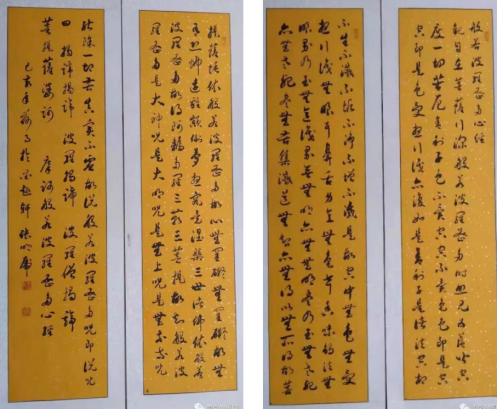 般若波羅蜜多心經
觀自在菩薩行深般若波羅蜜多時照見五蘊皆空
度一切苦厄舍利子色不異空空不異色色即是空
空即是色受想行識亦復如是舍利子是諸法空相
不生不滅不垢不淨不增不減是故空中無色無受
想行識無眼耳鼻舌身意無色聲香味觸法無
眼界乃至無意識界無無明亦無無明盡乃至無老死
亦無老死盡無苦集滅道無智亦無得以無所得故菩
提薩埵依般若波羅蜜多故心無罣礙無罣礙故無
有恐怖遠離顛倒夢想究竟涅槃三世諸佛依般若
波羅蜜多故得阿耨多羅三藐三菩提故知般若波
羅蜜多是大神咒是大明咒是無上咒是無等等咒
能除一切苦真實不虛故說般若波羅蜜多咒即說咒
曰 揭諦揭諦 波羅揭諦 波羅僧揭諦
菩提薩婆訶 摩訶般若波羅蜜多心經
己亥年